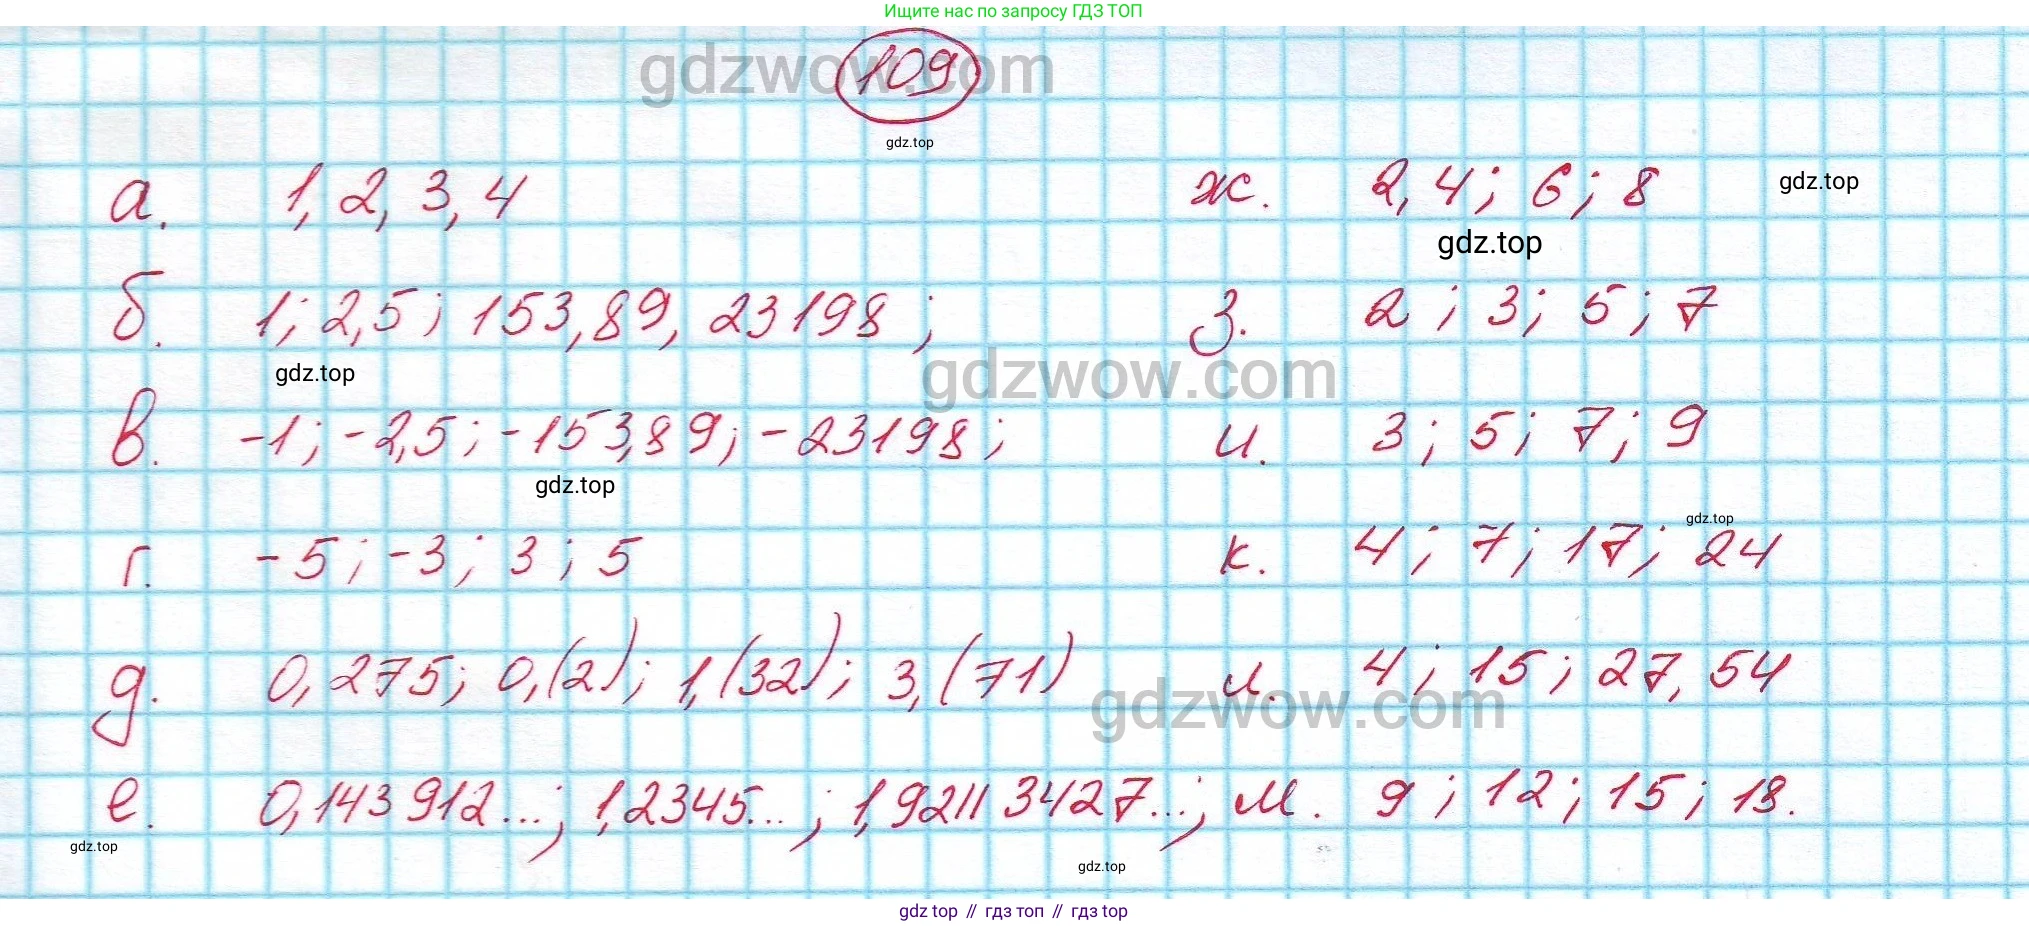 Ищите нас по запросу ГДЗ ТОП
gdzwow.com
109
gdz.top
а. 1, 2, 3, 4
ж. 2, 4; 6; 8
gdz.top
gdz.top
б. 1; 2,5; 153,89, 23198;
з. 2; 3; 5; 7
gdz.top
gdzwow.com
в. -1; -2,5; -153,89; -23198;
и. 3; 5; 7; 9
gdz.top
г. -5; -3; 3; 5
к. 4; 7; 17; 24
gdz.top
д. 0,275; 0,(2); 1,(32); 3,(71)
л. 4; 15; 27, 54
gdzwow.com
е. 0,143912...; 1,2345...; 1,92113427...;
м. 9; 12; 15; 18.
gdz.top
gdz.top
gdz top // гдз топ // гдз top